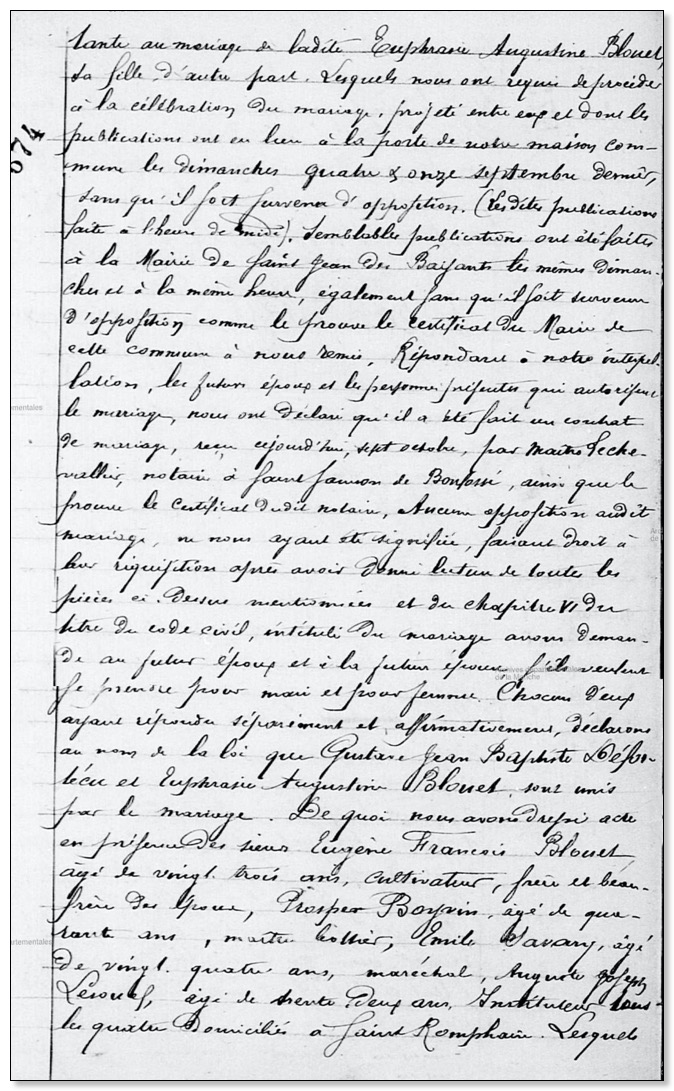 tante au mariage de ladite Euphrasie Augustine Blouet,
sa fille d'autre part. Lesquels nous ont requis de procéder
à la célébration du mariage, projeté entre eux et dont les
publications ont eu lieu à la porte de notre maison com-
mune les dimanches quatre & onze septembre dernier,
sans qu'il soit survenu d'opposition. (Lesdites publications
faite à l'heure de midi). Semblables publications ont été faites
à la Mairie de Saint Jean des Baisants les mêmes diman-
ches et à la même heure, également sans qu'il soit survenu
d'opposition comme le prouve le certificat du Maire de
cette commune à nous remis. Répondant à notre interpel-
lation, les futurs époux et les personnes présentes qui autorisent
le mariage, nous ont déclaré qu'il a été fait un contrat
de mariage, reçu cejourd'hui, sept octobre, par Maître Leche-
vallier, notaire à Saint Samson de Bonfossé, ainsi que le
prouve le certificat dudit notaire, Aucune opposition audit
mariage, ne nous ayant été signifiée, faisant droit à
leur réquisition après avoir donné lecture de toutes les
pièces ci-dessus mentionnées et du chapitre VI du
titre du code civil, intitulé du mariage avons deman-
dé au futur époux et à la future épouse s'ils veulent
se prendre pour mari et pour femme. Chacun d'eux
ayant répondu séparément et affirmativement, déclarons
au nom de la loi que Gustave Jean Baptiste
et Euphrasie Augustine Blouet, sont unis
par le mariage. De quoi nous avons dressé acte
en présence des sieurs Eugène François Blouet,
âgé de vingt trois ans, cultivateur, frère et beau-
frère des époux, Prosper Boyvin, âgé de qua-
rante ans, maître, Emile Savary, âgé
de vingt quatre ans, maréchal, Auguste Joseph
Lerouet, âgé de trente deux ans, Instituteur tous
les quatre domiciliés à Saint Romphaire. Lesquels
674